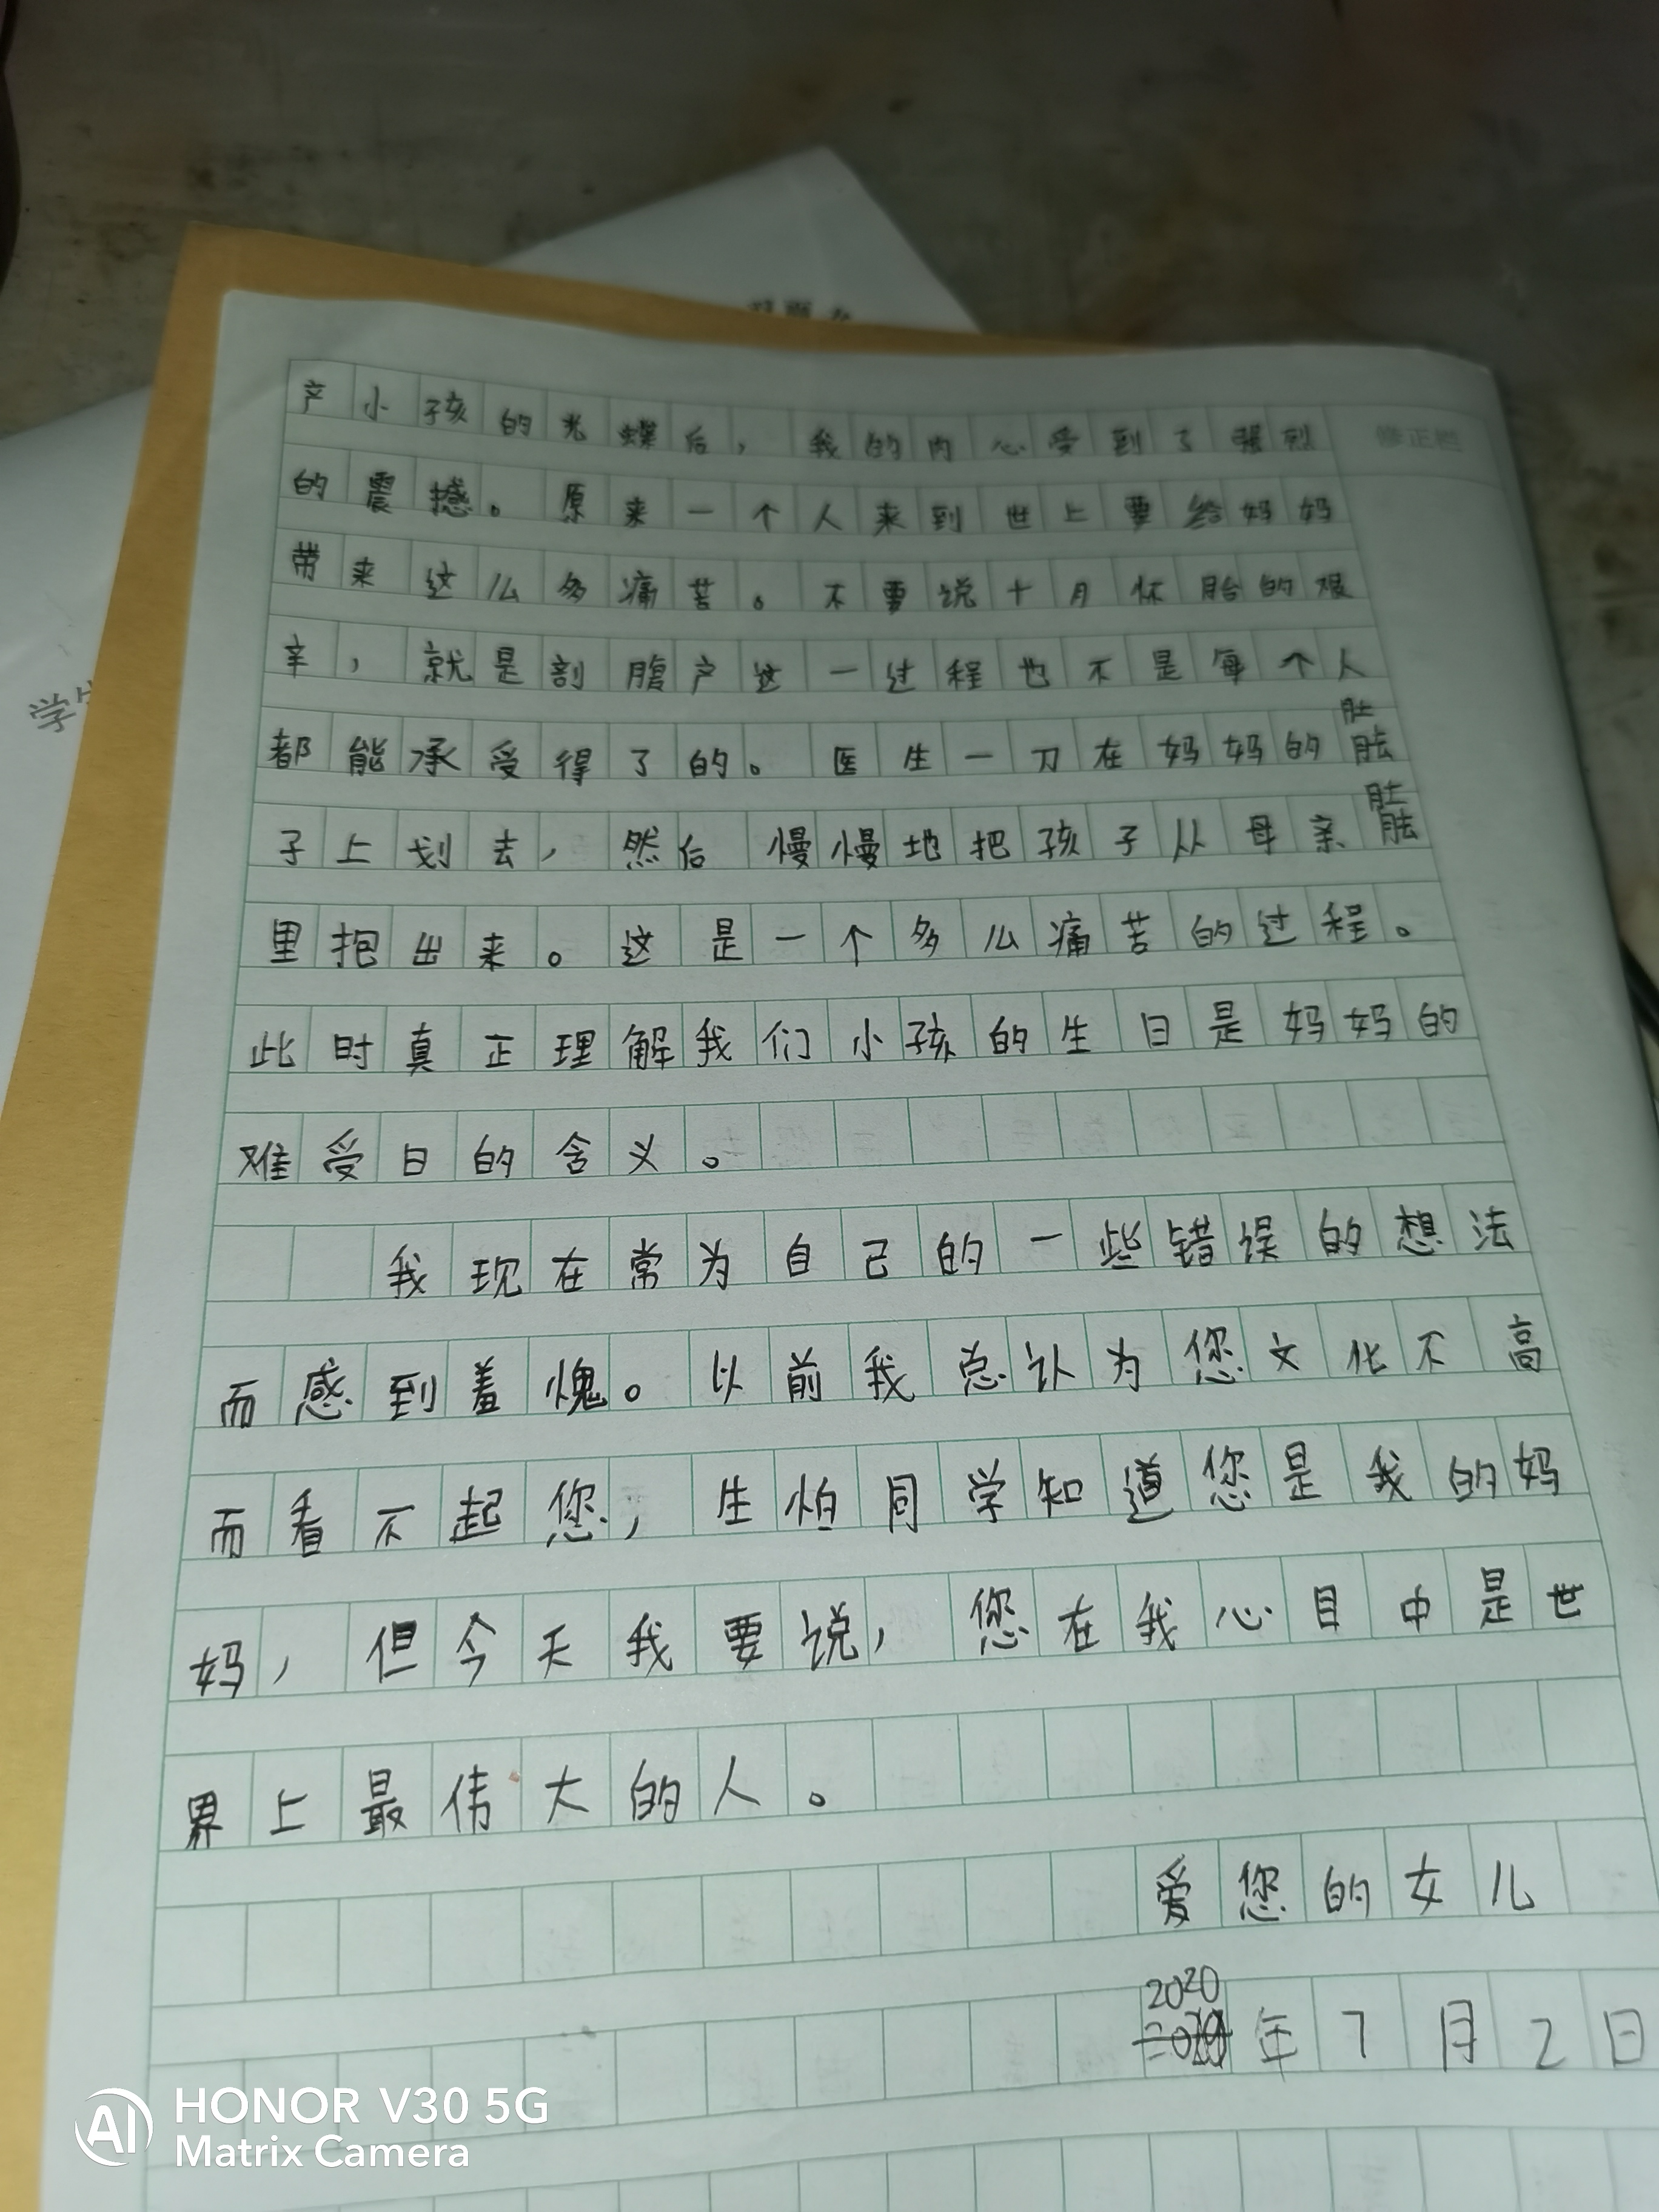 产小孩的光蝶后，我的内心受到了强烈
修正栏
的震撼。原来一个人来到世上要给妈妈
带来这么多痛苦。不要说十月怀胎的艰
辛，就是剖腹产这一过程也不是每个人
都能承受得了的。医生一刀在妈妈的肚
子上划去，然后慢慢地把孩子从母亲肚
里抱出来。这是一个多么痛苦的过程。
此时真正理解我们小孩的生日是妈妈的
难受日的含义。
我现在常为自己的一些错误的想法
而感到羞愧。以前我总认为您文化不高
而看不起您，生怕同学知道您是我的妈
妈，但今天我要说，您在我心目中是世
界上最伟大的人。
爱您的女儿
2020年7月2日
学生
HONOR V30 5G
Matrix Camera
AI